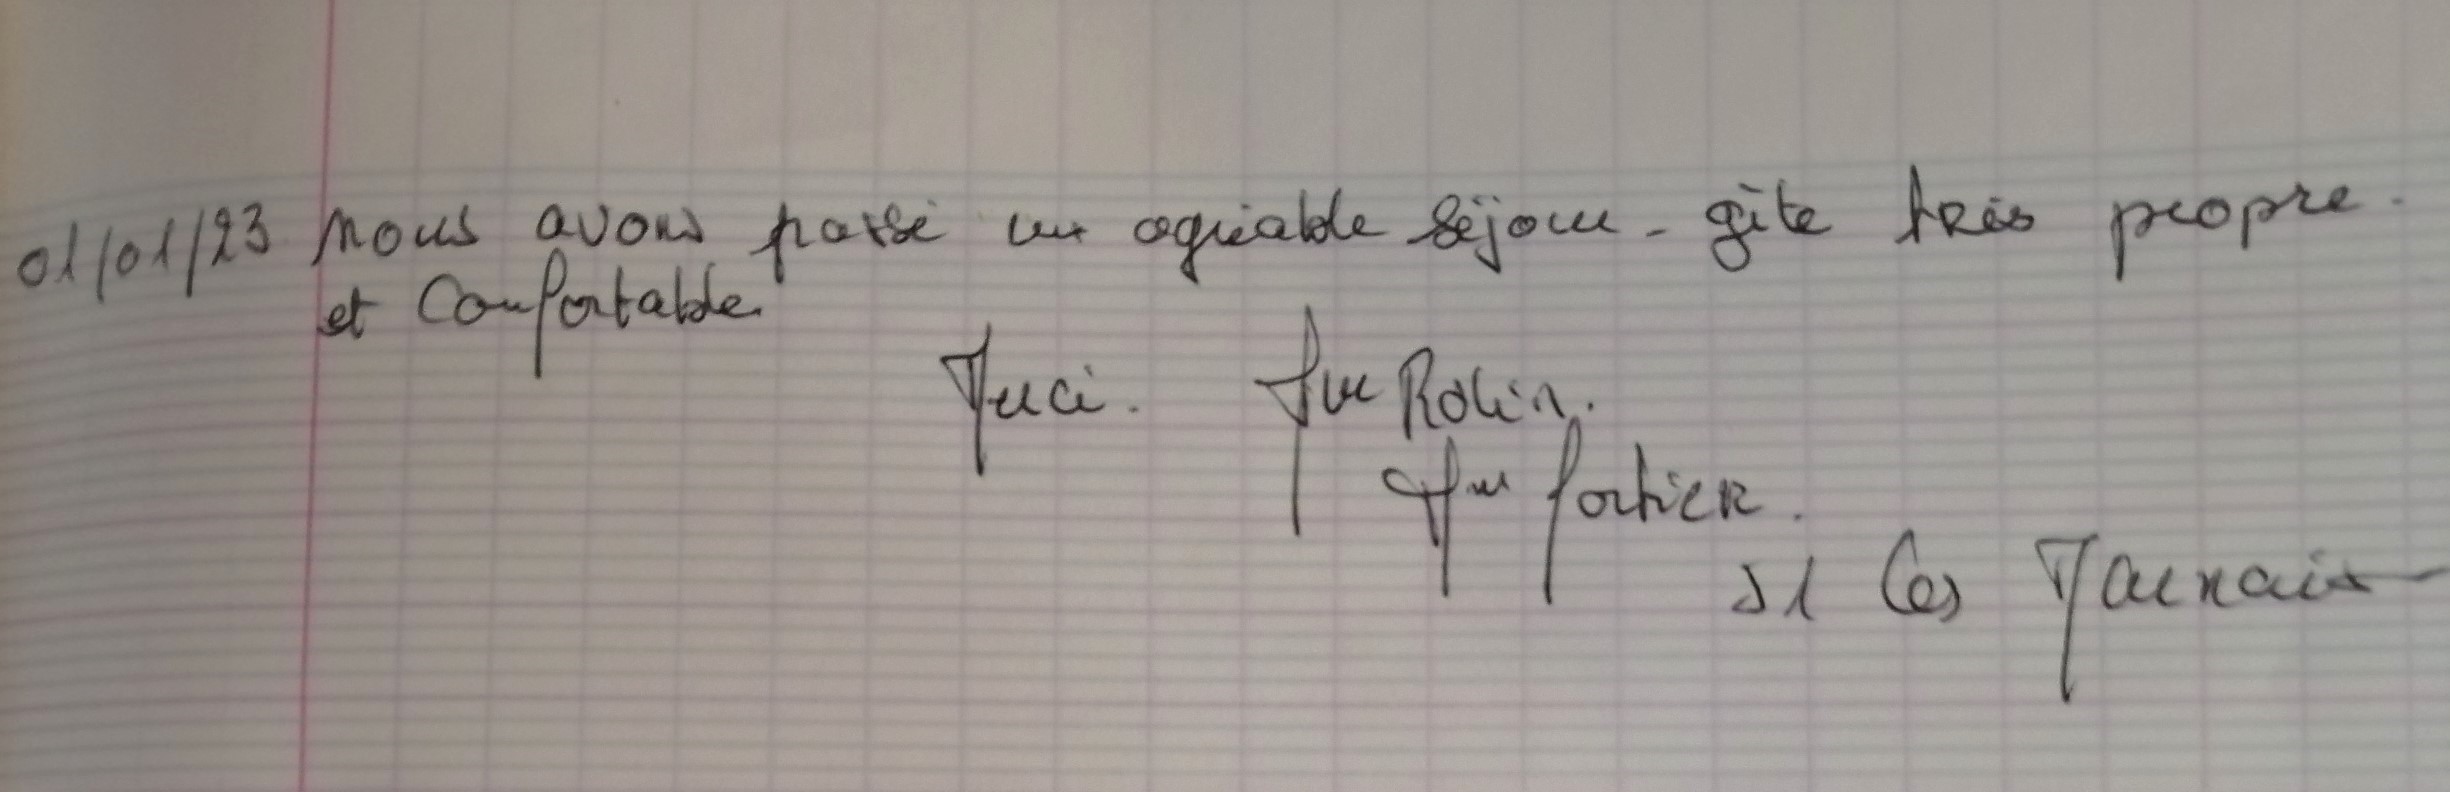 01/01/23 Nous avons passé un agréable séjour - gîte très propre.
et Confortable.
Merci. Mme Robin.
Mme Fortier.
51 les Marnais